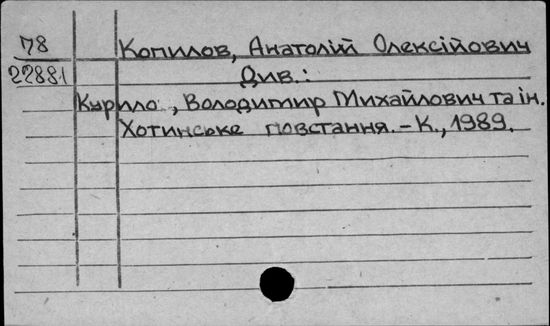 78
22881
Копилов, Анатолій Олексійович
Див.:
Курило, Володимир Михайлович та ін.
Хотинське повстання. – К., 1989.